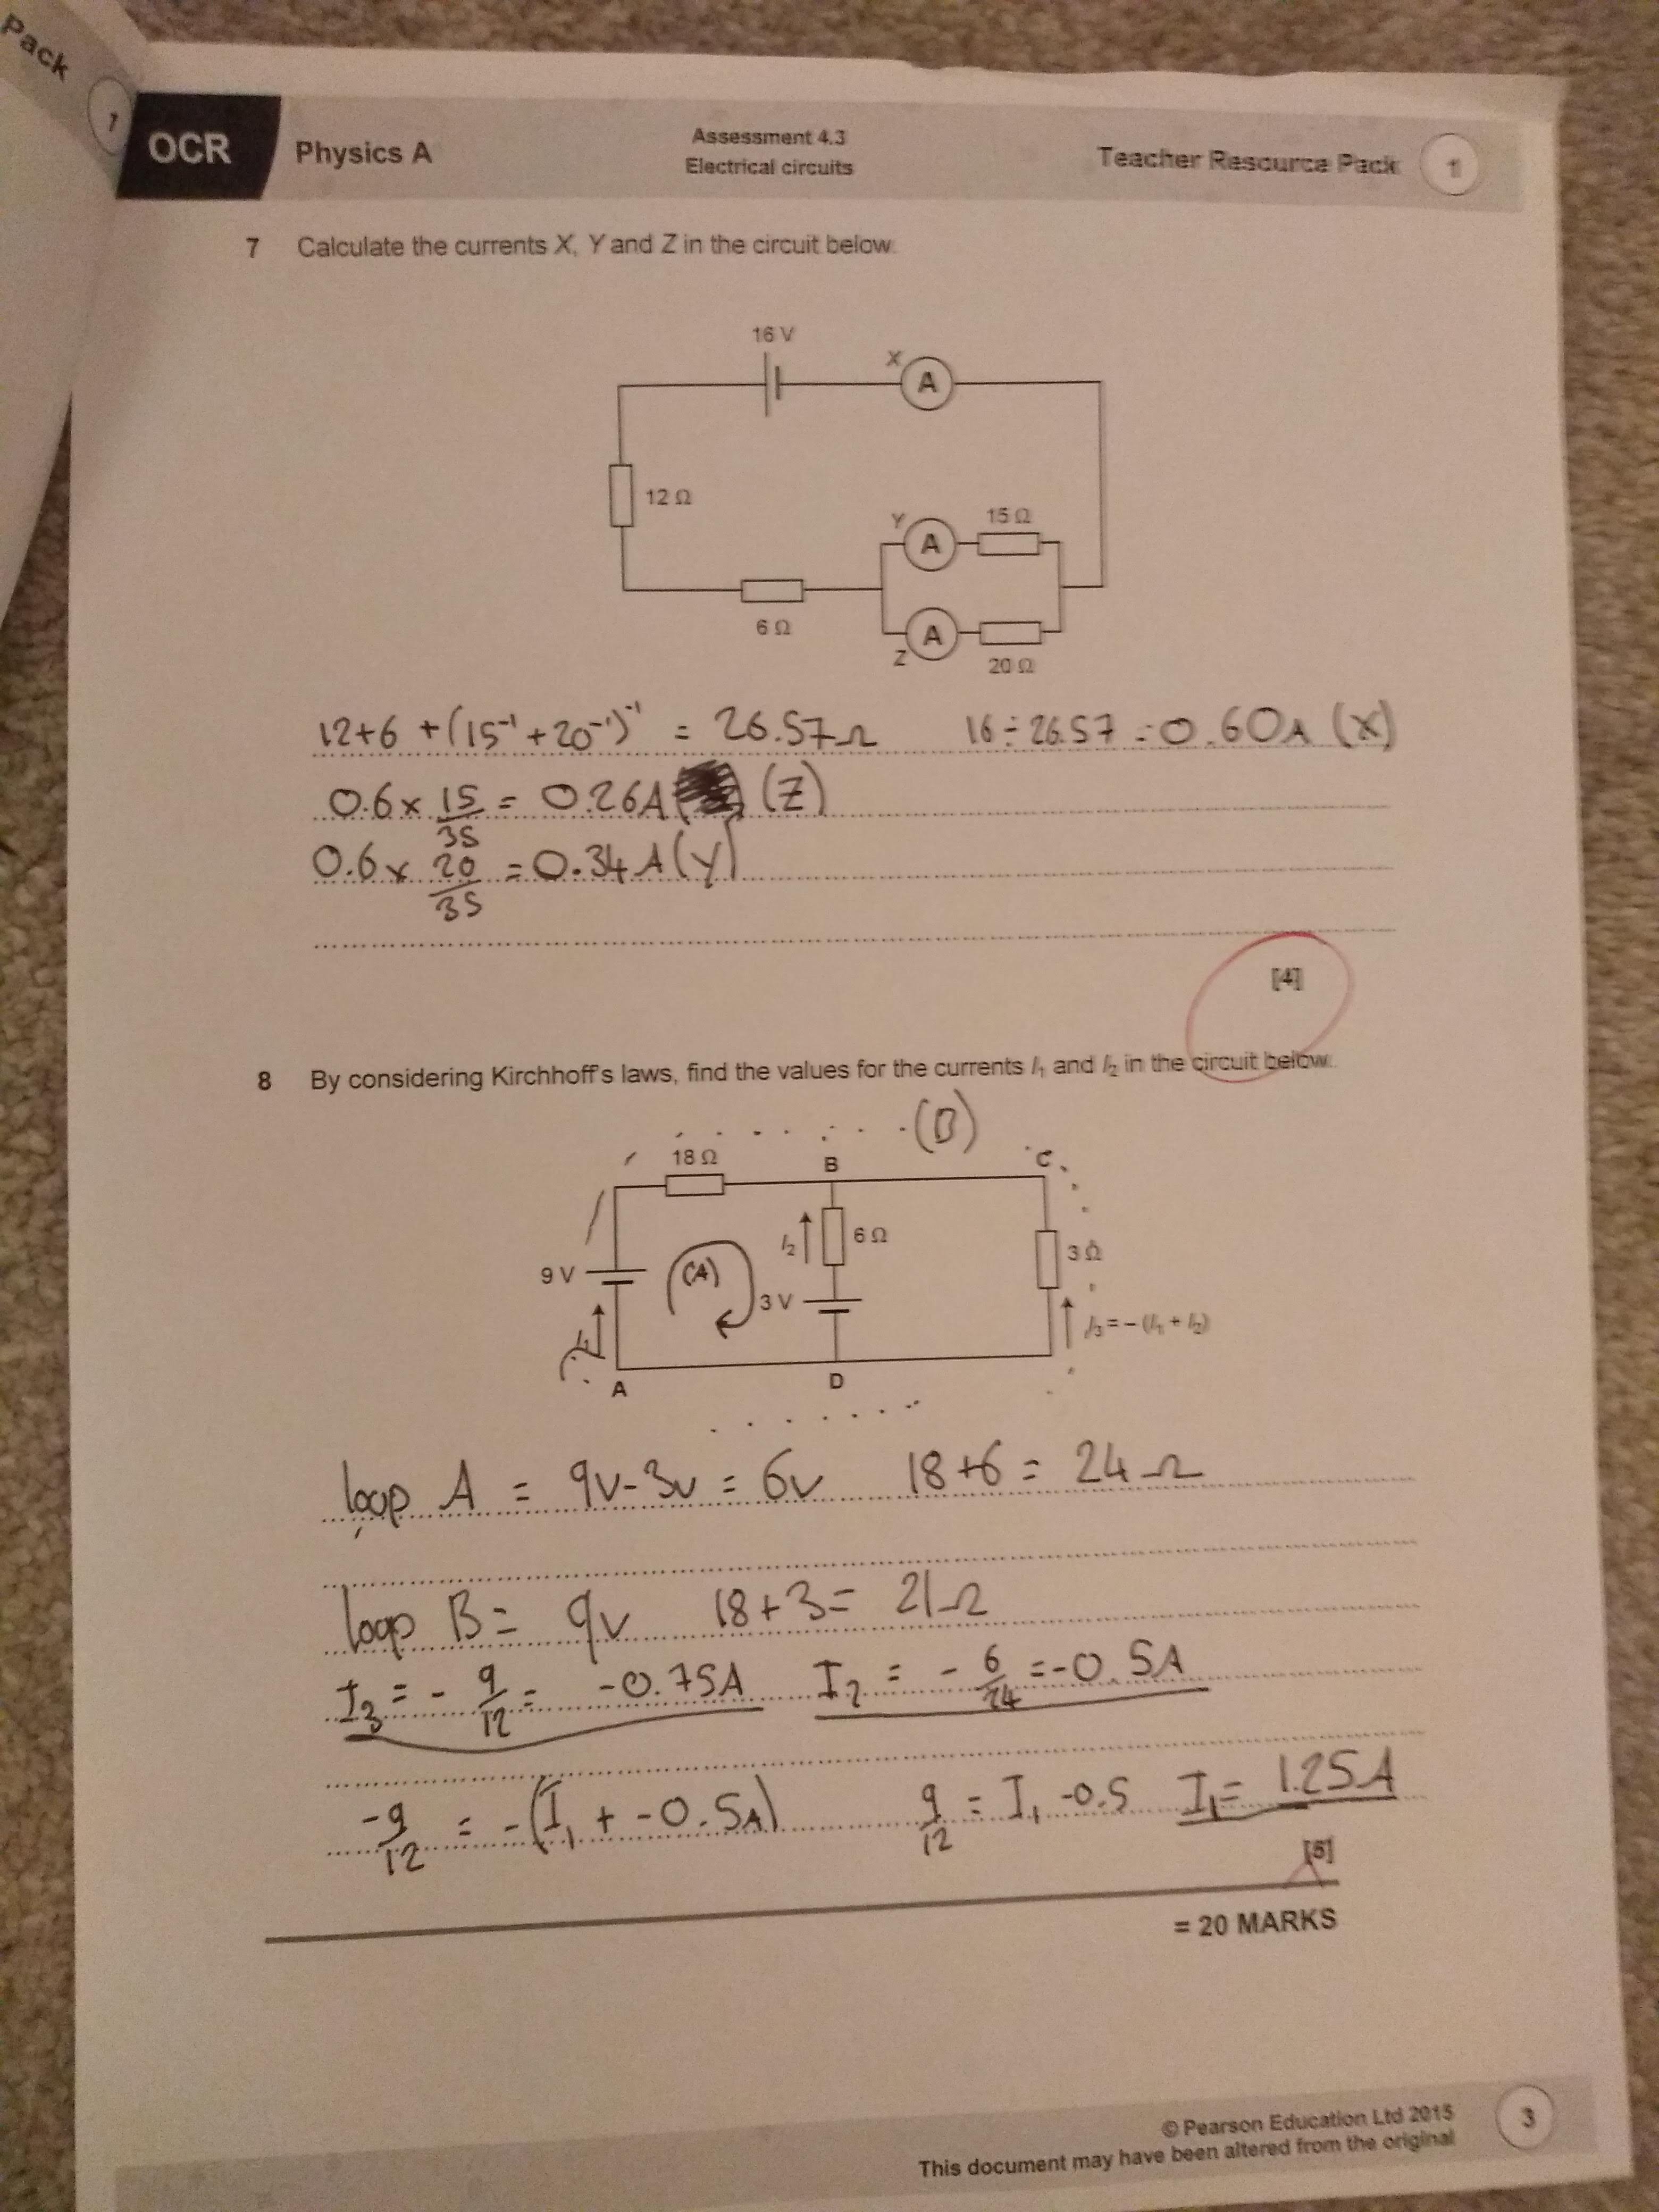 Pack
1
OCR Physics A Assessment 4.3 Electrical circuits Teacher Resource Pack 1
7 Calculate the currents X, Y and Z in the circuit below.
16 V
X
A
12 Ω
Y
A
15 Ω
6 Ω
Z
A
20 Ω
12+6 +(15⁻¹+20⁻¹)⁻¹ = 26.57Ω 16÷26.57 = 0.60A (X)
0.6 x 15/35 = 0.26A (Z)
0.6 x 20/35 = 0.34A (Y)
[4]
8 By considering Kirchhoff's laws, find the values for the currents I₁ and I₂ in the circuit below.
(B)
18 Ω
B
C
I₂
6 Ω
3 Ω
9 V
(A)
3 V
I₃ = – (I₁ + I₂)
A
D
loop A = 9v-3v = 6v 18+6 = 24Ω
loop B = 9v 18+3= 21Ω
I₃ = - 9/12 = -0.75A I₂ = - 6/24 = -0.5A
-9/12 = -(I₁ + -0.5A) 9/12 = I₁ -0.5 I₁= 1.25A
[5]
= 20 MARKS
© Pearson Education Ltd 2015
This document may have been altered from the original
3